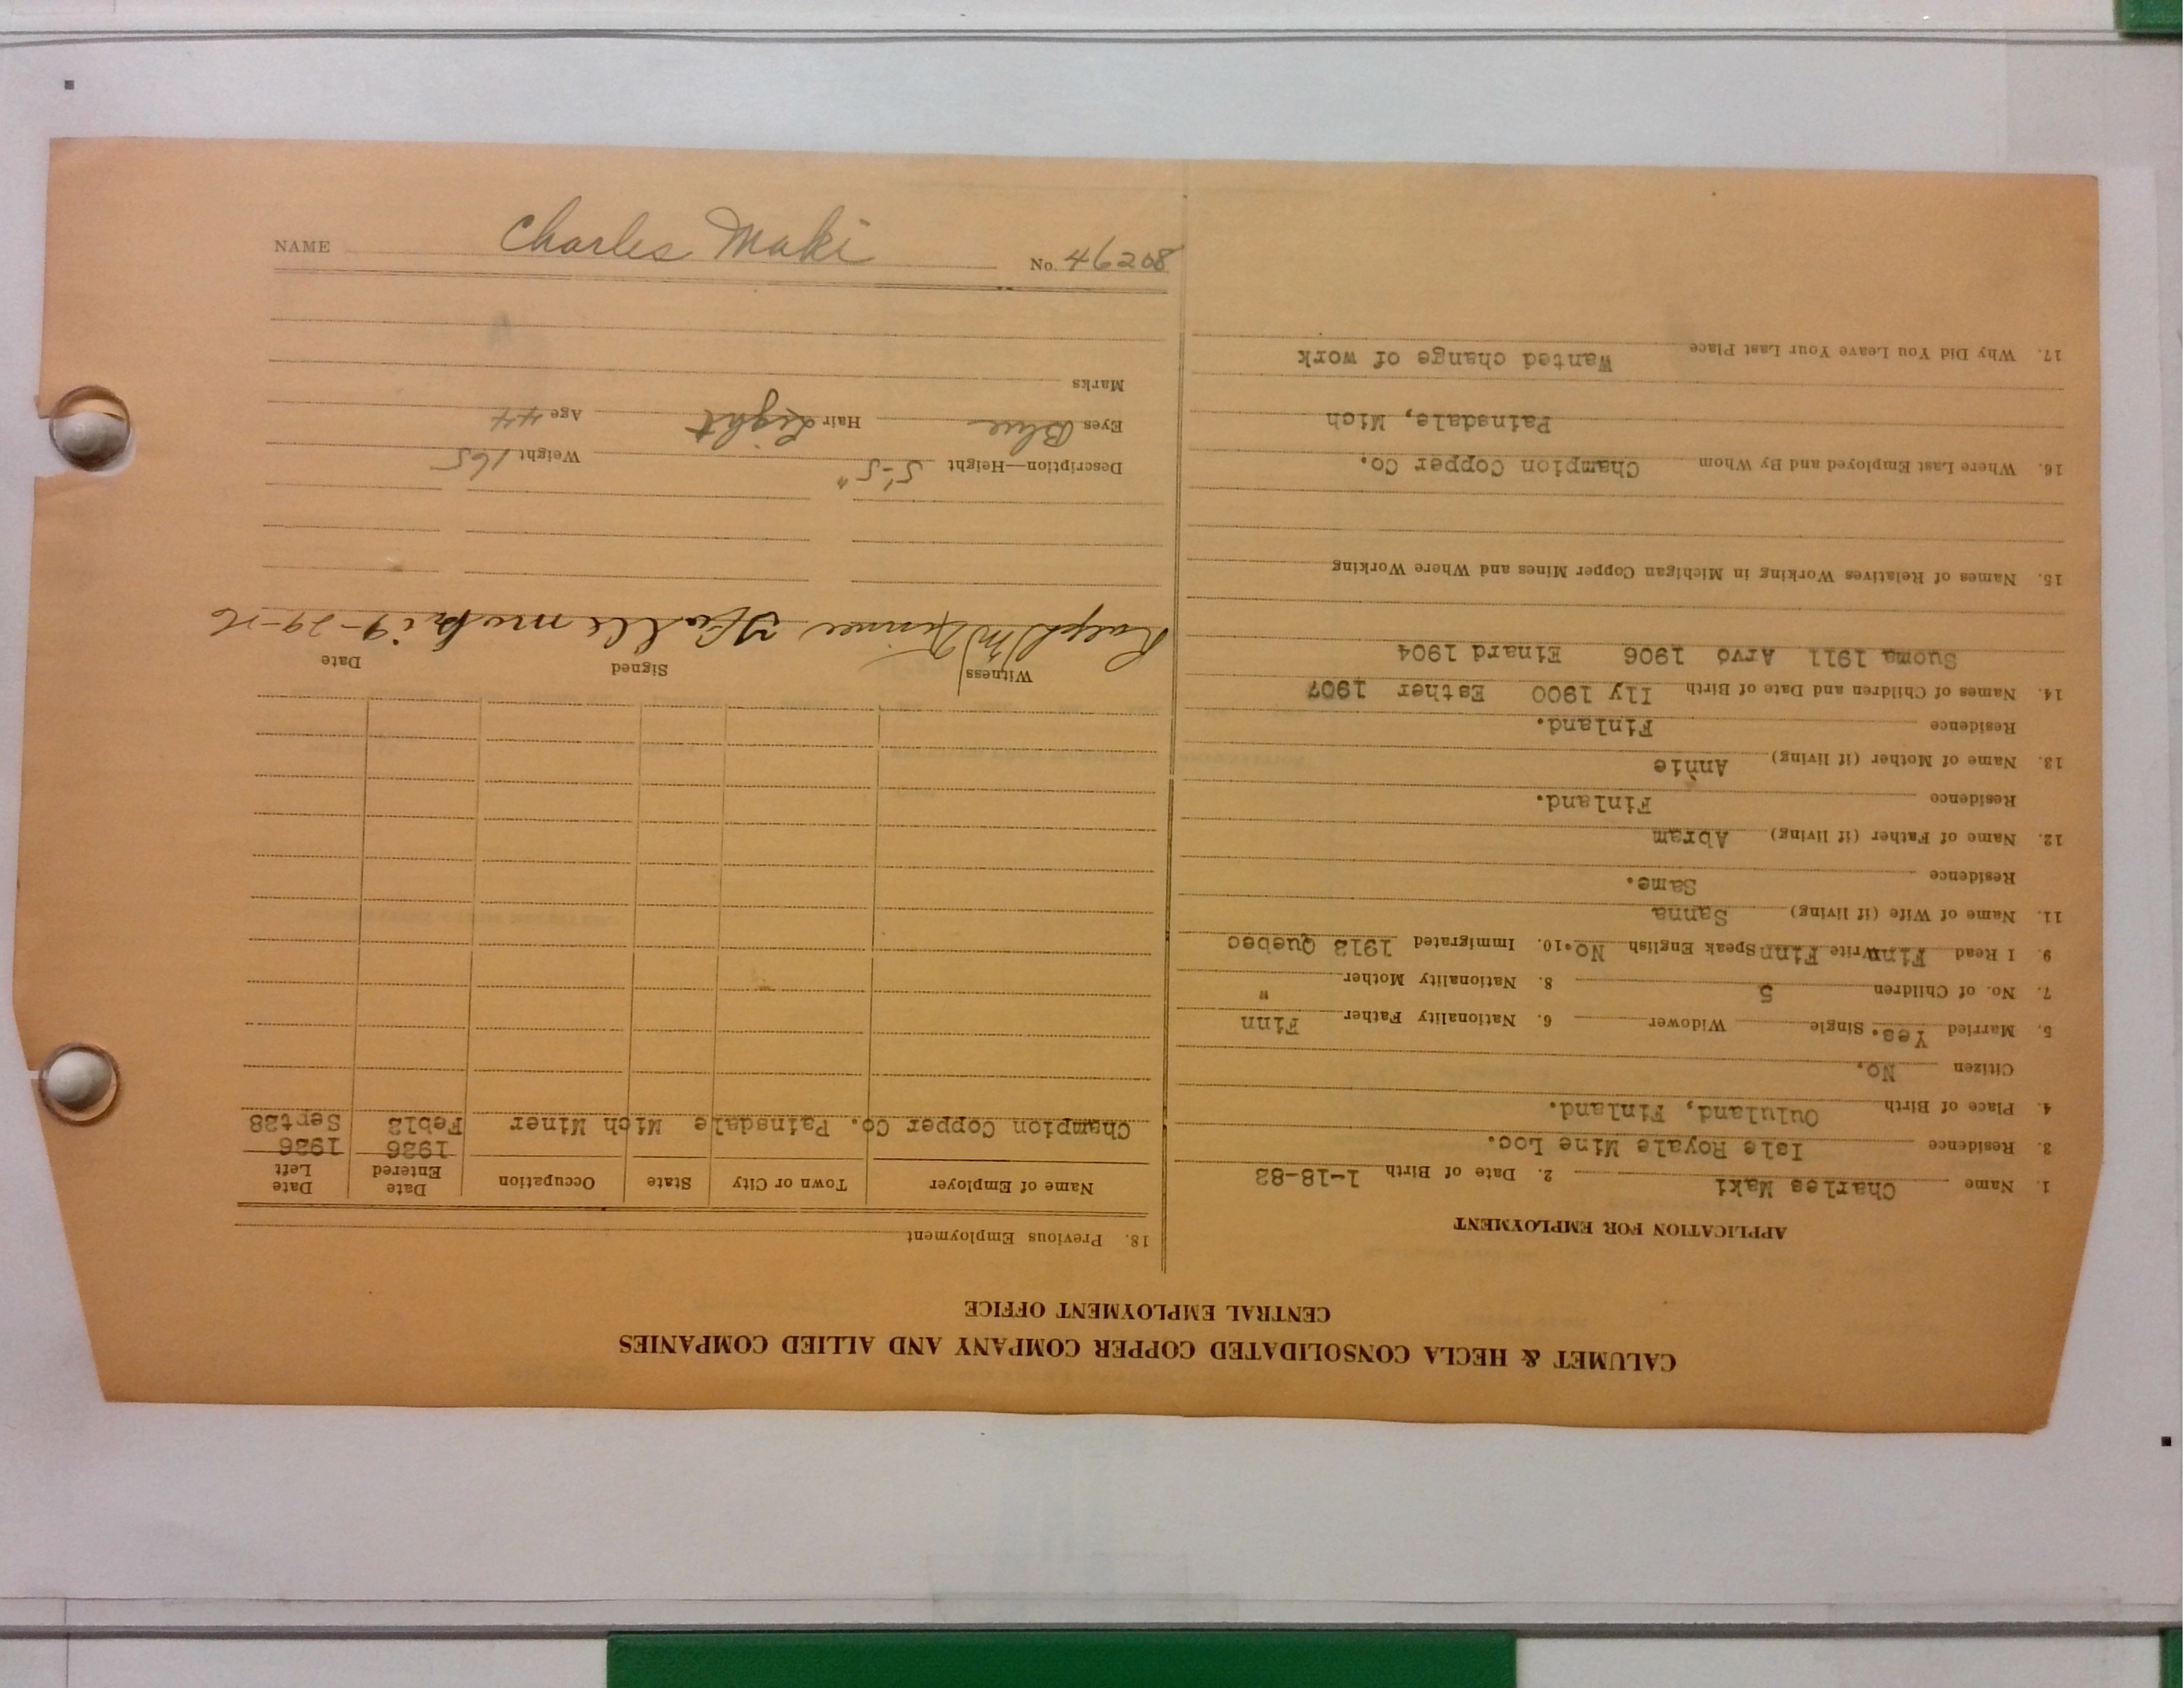 CALUMET & HECLA CONSOLIDATED COPPER COMPANY AND ALLIED COMPANIES
CENTRAL EMPLOYMENT OFFICE
APPLICATION FOR EMPLOYMENT
1. Name Charles Maki 2. Date of Birth 1-18-82
3. Residence Isle Royale Mine Loc.
4. Place of Birth Oululand, Finland.
Citizen No.
5. Married Yes. Single Widower 6. Nationality Father Finn
7. No. of Children 5 8. Nationality Mother "
9. I Read Finn Write Finn Speak English No. 10. Immigrated 1913 Quebec
11. Name of Wife (if living) Sanna
Residence Same.
12. Name of Father (if living) Abram
Residence Finland.
13. Name of Mother (if living) Annie
Residence Finland.
14. Names of Children and Date of Birth Ily 1900 Esther 1907
Suoma 1911 Arvo 1906 Einard 1904
15. Names of Relatives Working in Michigan Copper Mines and Where Working
16. Where Last Employed and By Whom Champion Copper Co.
Painsdale, Mich
17. Why Did You Leave Your Last Place Wanted change of work
18. Previous Employment
Name of Employer Town or City State Occupation Date Entered Date Left
1926 1926
Champion Copper Co. Painsdale Mich Miner Feb12 Sept28
Witness Signed Date
Ralph Kalle maki 9-29-26
Description—Height 5'-5" Weight 165
Eyes Blue Hair Light Age 44
Marks
NAME Charles Maki No. 46208